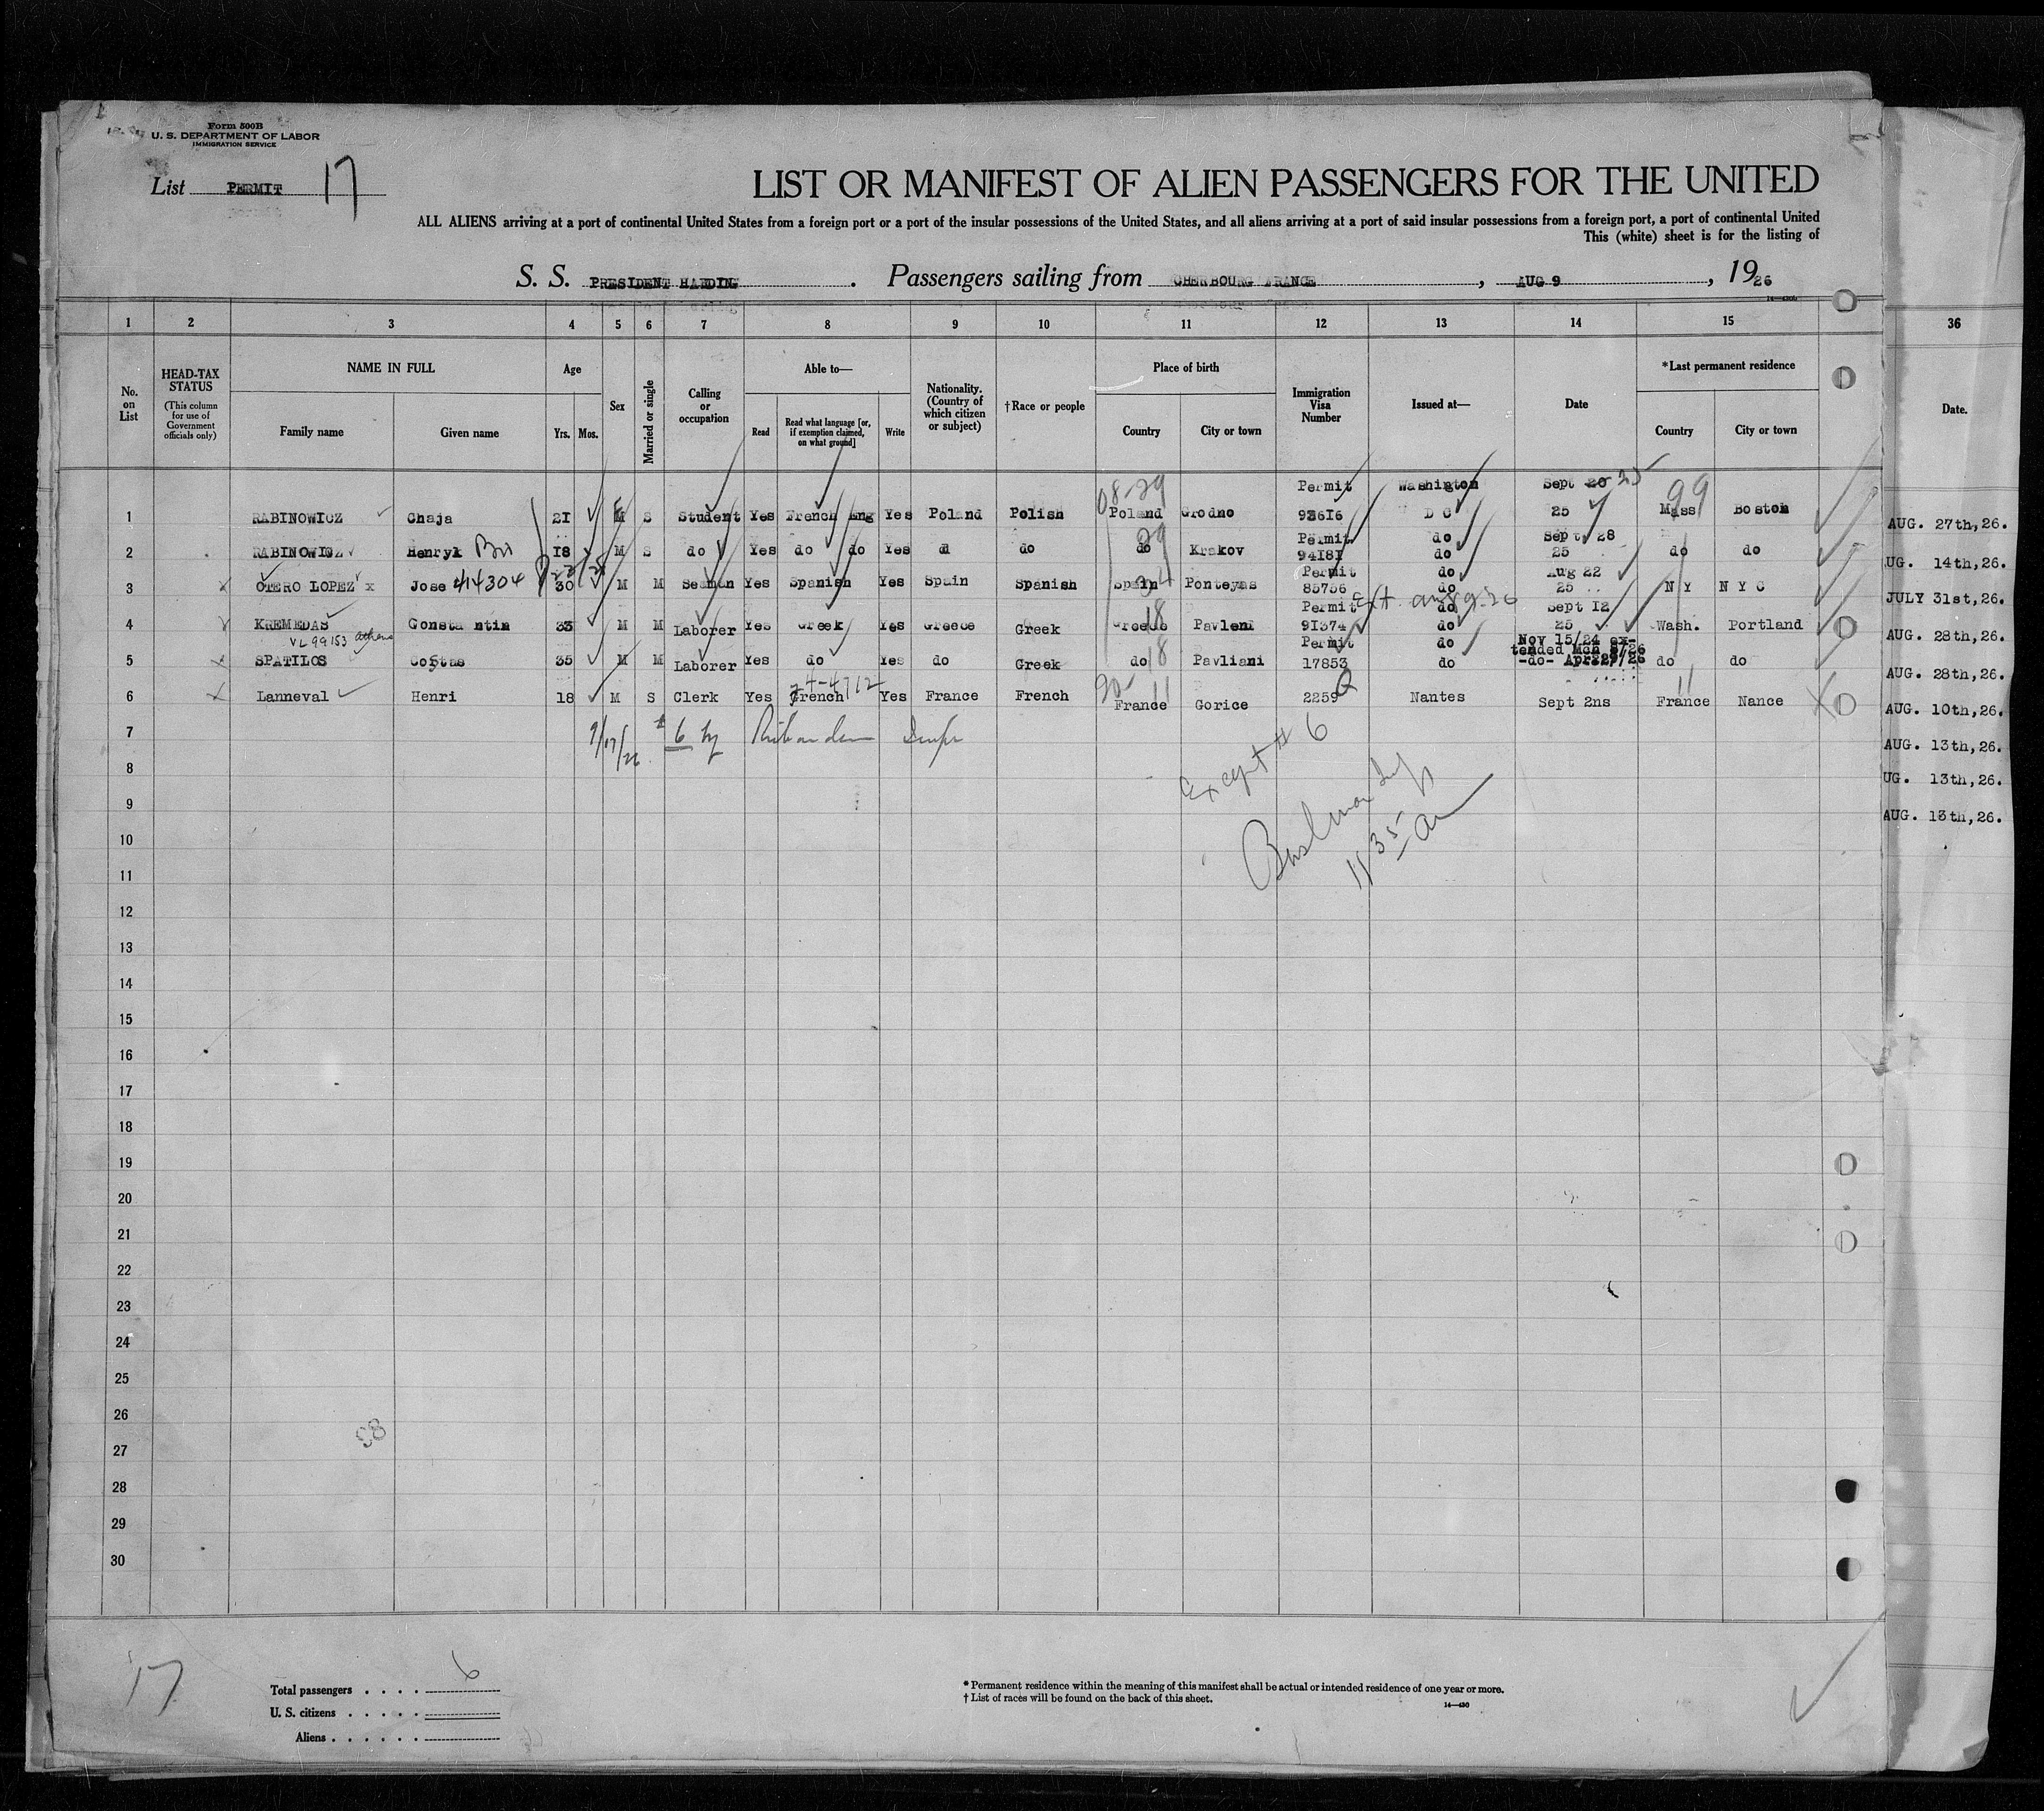 Form 500B
U. S. DEPARTMENT OF LABOR
IMMIGRATION SERVICE
List PERMIT 17
LIST OR MANIFEST OF ALIEN PASSENGERS FOR THE UNITED
ALL ALIENS arriving at a port of continental United States from a foreign port or a port of the insular possessions of the United States, and all aliens arriving at a port of said insular possessions from a foreign port, a port of continental United
This (white) sheet is for the listing of
S. S. PRESIDENT HARDING. Passengers sailing from CHERBOURG FRANCE, AUG 9, 1926
1 2 3 4 5 6 7 8 9 10 11 12 13 14 15 36
No. on List
HEAD-TAX STATUS (This column for use of Government officials only)
NAME IN FULL
Family name Given name
Age
Yrs. Mos.
Sex
Married or single
Calling or occupation
Able to—
Read Read what language [or, if exemption claimed, on what ground] Write
Nationality. (Country of which citizen or subject)
†Race or people
Place of birth
Country City or town
Immigration Visa Number
Issued at—
Date
*Last permanent residence
Country City or town
Date.
08-29 Permit Washington Sept 20 25 99
1 RABINOWICZ Chaja 21 M F S Student Yes French Eng Yes Poland Polish Poland Grodno 93616 D C 25 Mass Boston AUG. 27th,26.
Permit do Sept 28
2 RABINOWICZ Henryk 18 M S do Yes do do Yes d do do 29 Krakov 94181 do 25 do do UG. 14th,26.
Permit do Aug 22
3 OTERO LOPEZ x Jose 414304 30 M M Seaman Yes Spanish Yes Spain Spanish Spain 34 Ponteyas 85756 do 25 N Y N Y C JULY 31st,26.
Permit Ext. aug 9. 26 do Sept 12
4 KREMEDAS Constantin 33 M M Laborer Yes Greek Yes Greece Greek Greece 18 Pavleni 91374 do 25 Wash. Portland AUG. 28th,26.
VL 99153 athens Permit do Nov 15/24 ex-
tended Mch 8/26
5 SPATILOS Costas 35 M M Laborer Yes do Yes do Greek do 18 Pavliani 17853 do -do- Apr 29/26 do do AUG. 28th,26.
6 Lanneval Henri 18 M S Clerk Yes French Yes France French France Gorice 2259 Q Nantes Sept 2ns France Nance AUG. 10th,26.
7 9/17/26 # 6 by AUG. 13th,26.
Except # 6
8 UG. 13th,26.
9 AUG. 13th,26.
11 35 am
10
11
12
13
14
15
16
17
18
19
20
21
22
23
24
25
26
83
27
28
29
30
17
Total passengers . . . . 6
U. S. citizens . . . . .
Aliens . . . . . .
* Permanent residence within the meaning of this manifest shall be actual or intended residence of one year or more.
† List of races will be found on the back of this sheet.
14—430